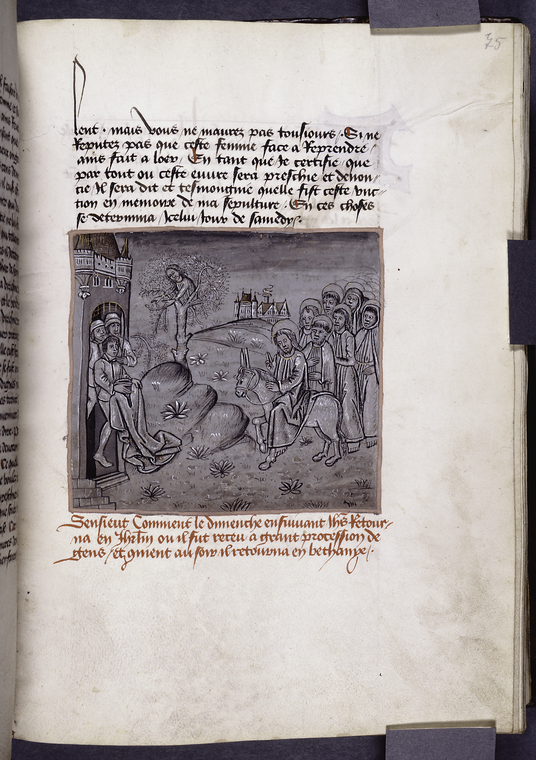 75
lent · mais vous ne maurez pas tousiours · Si ne
Reputez pas que ceste femme face a Reprendre /
ains fait a loer / En tant que Je certifie / que
par tout ou ceste euure sera preschie et denon-
cie Il sera dit et tesmongnie quelle fist ceste unc-
tion en memoire de ma sepulture · En ces choses
se determina / Icelui Jour de samedy ·
Sensieut Comment le dimenche ensuiuant Ihs Retour-
na en Jhrlm ou il fut receu a grant procession de
gens / et coment au soir il retourna en bethanye ·